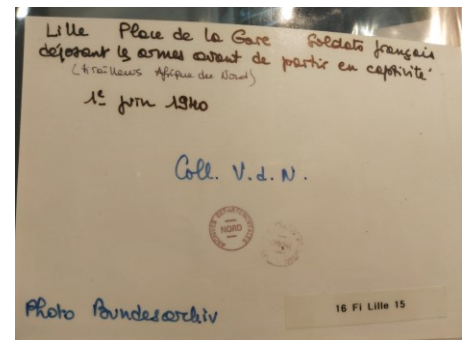 Lille Place de la Gare Soldats français
déposant les armes avant de partir en captivité
(tirailleurs Afrique du Nord)
1e juin 1940
Coll. V. d. N.
ARCHIVES DEPARTEMENTALES
NORD
Photo Bundesarchiv
16 Fi Lille 15